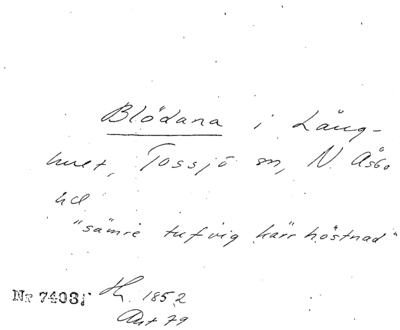 Blödana i Lång-
hult, Tossjö sn, N. Åsbo
hd
"sämre tufvig kärr höstnad"
Nr 7403; H. 1852
Akt 79